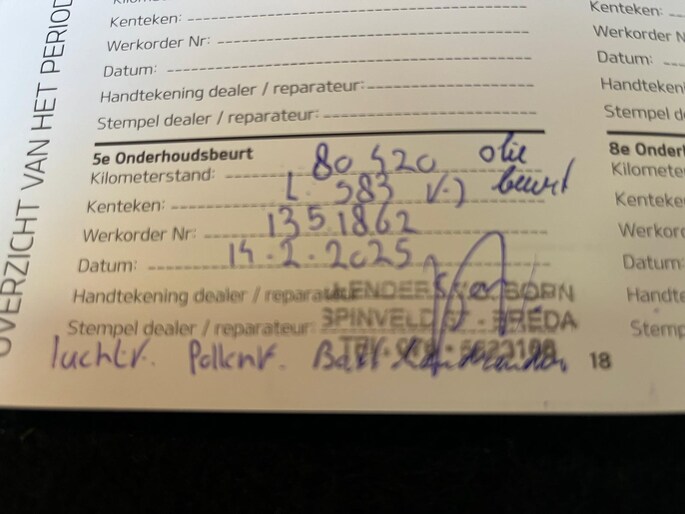 OVERZICHT VAN HET PERIOD
Kenteken:
Werkorder Nr:
Datum:
Handtekening dealer / reparateur:
Stempel dealer / reparateur:
5e Onderhoudsbeurt
Kilometerstand: 80 420 olie
Kenteken: L. 983 beurt
Werkorder Nr: 1351862
Datum: 14.2.2025
Handtekening dealer / reparateur:
Stempel dealer / reparateur:
luchtv. Pollenv. Batt
18
Kenteken:
Werkorder N
Datum:
Handtekening
Stempel d
8e Onder
Kilomete
Kenteke
Werkor
Datum:
Handt
Stemp